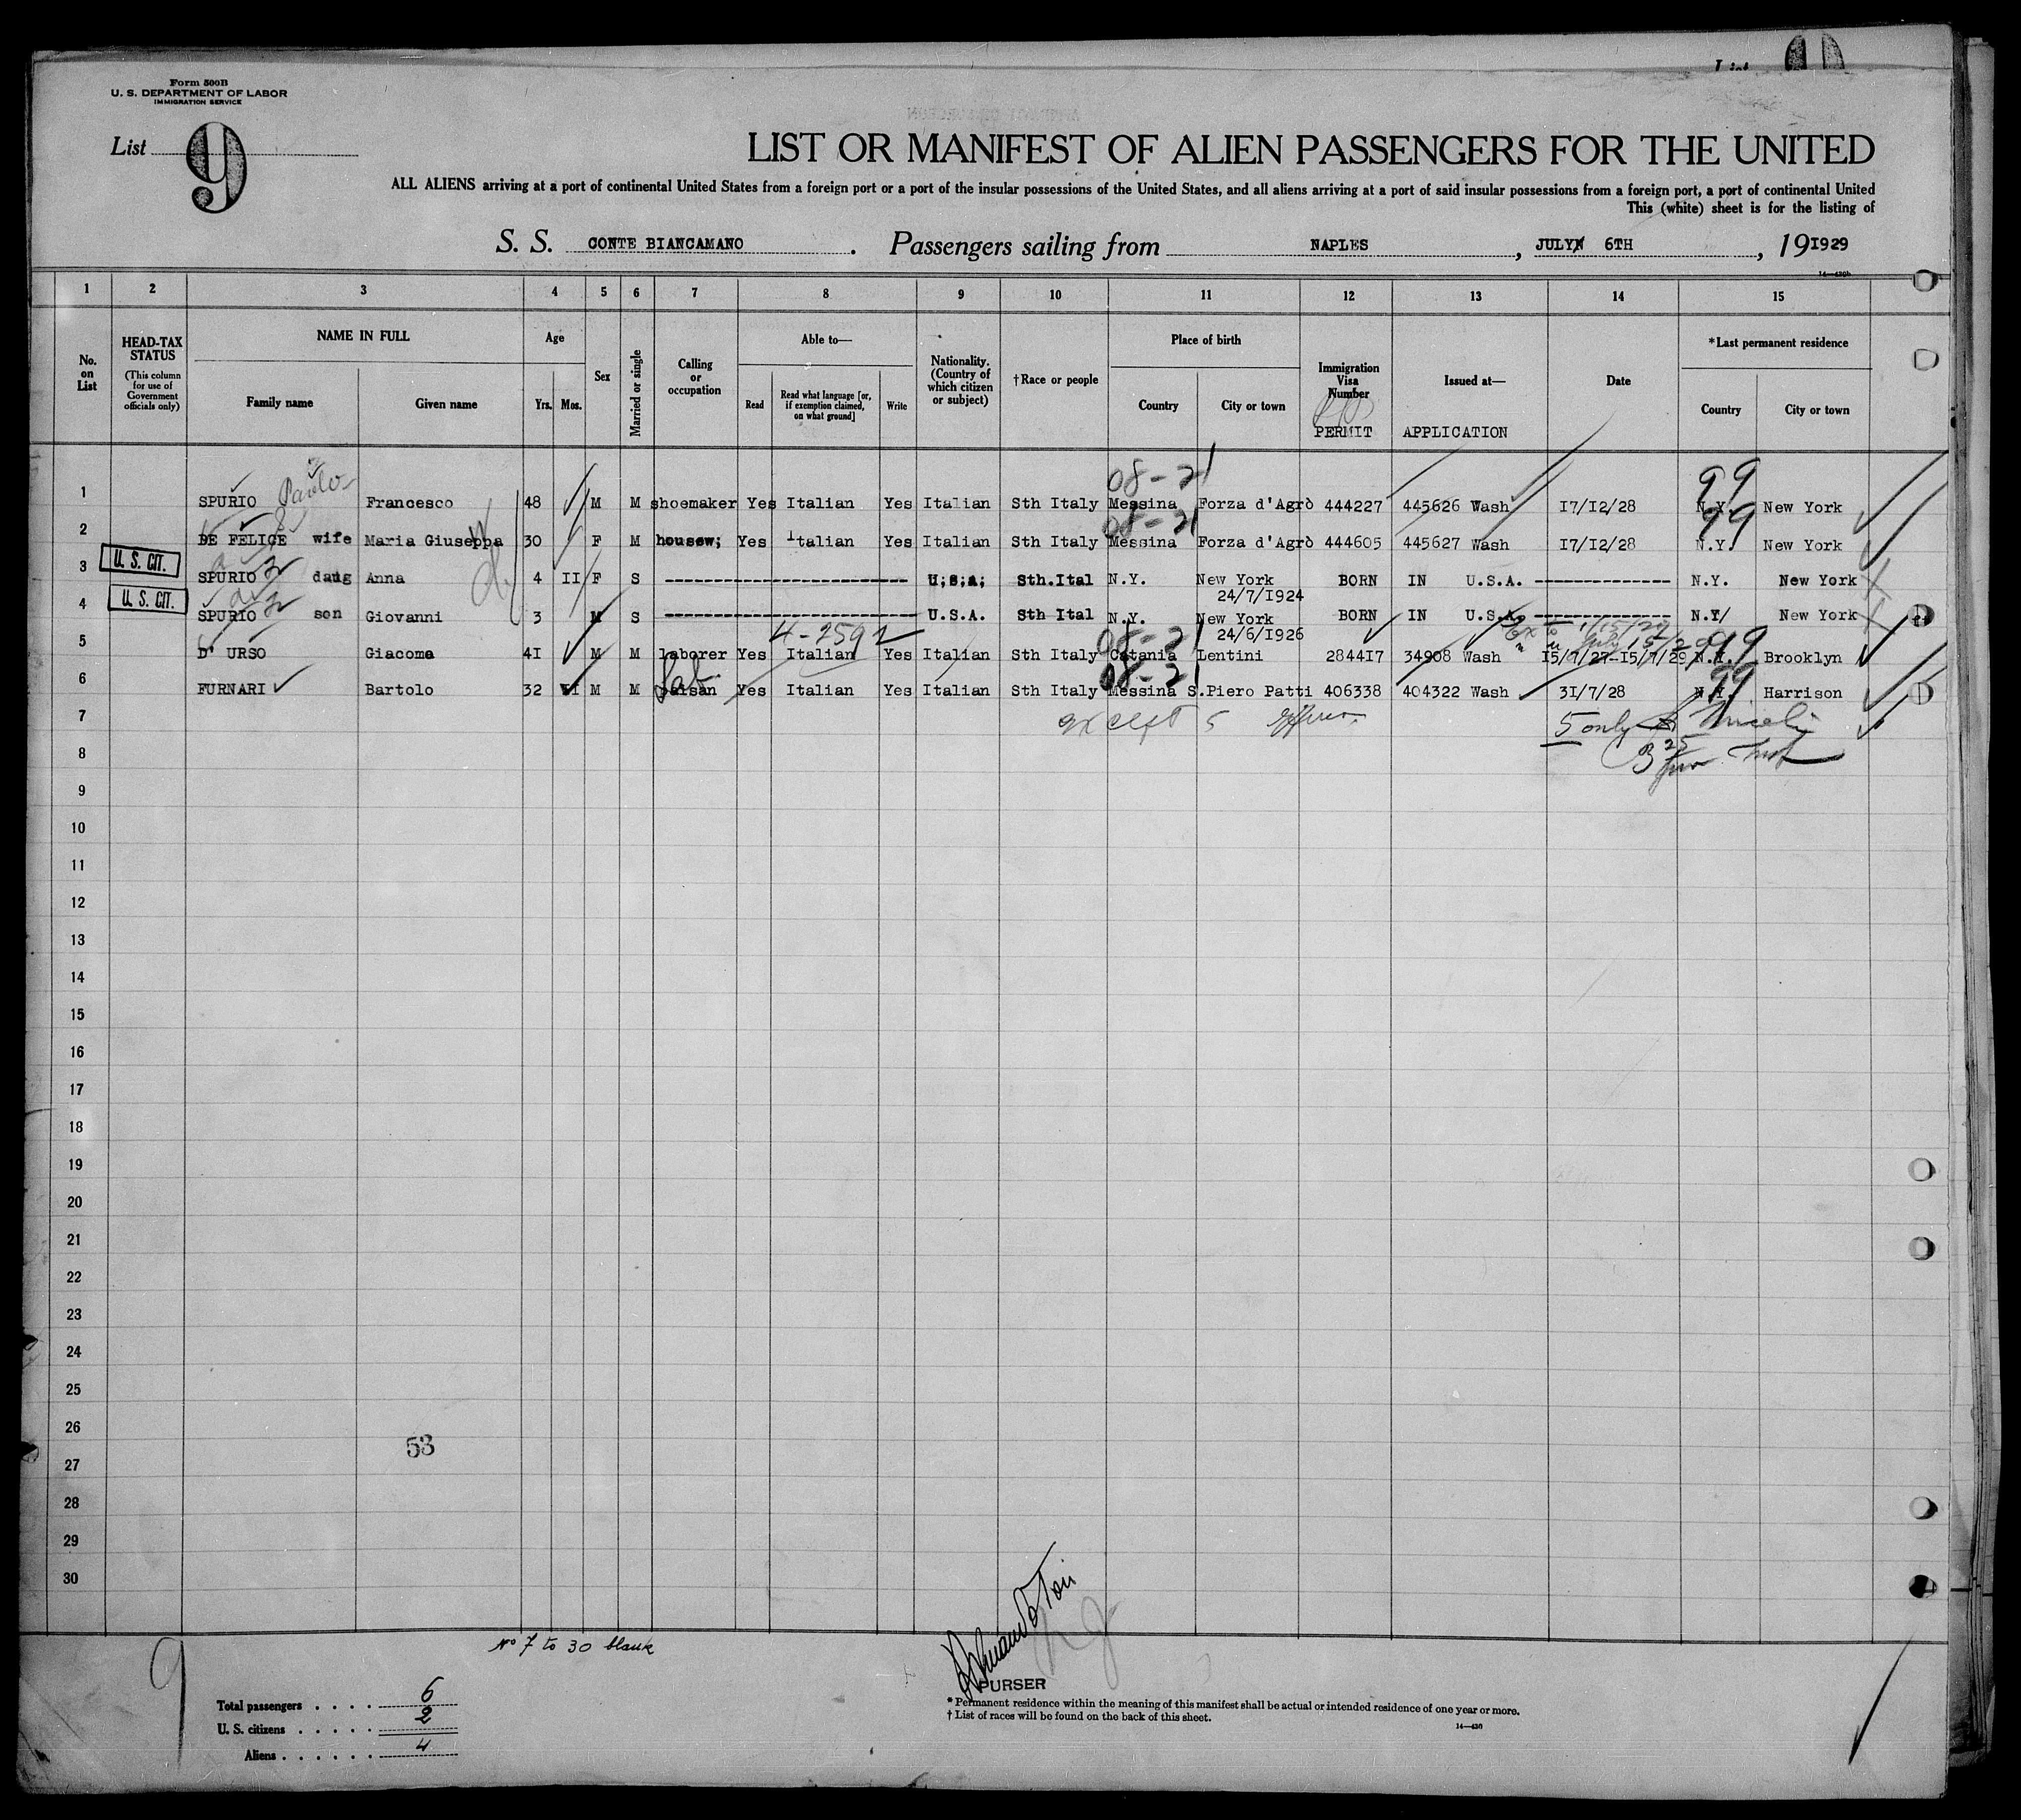 List
Form 500B
U. S. DEPARTMENT OF LABOR
IMMIGRATION SERVICE
List 9
LIST OR MANIFEST OF ALIEN PASSENGERS FOR THE UNITED
ALL ALIENS arriving at a port of continental United States from a foreign port or a port of the insular possessions of the United States, and all aliens arriving at a port of said insular possessions from a foreign port, a port of continental United
This (white) sheet is for the listing of
S. S. CONTE BIANCAMANO. Passengers sailing from NAPLES, JULY 6TH, 19 I929
14—430b
1 2 3 4 5 6 7 8 9 10 11 12 13 14 15
No. on List
HEAD-TAX STATUS
(This column for use of Government officials only)
NAME IN FULL
Family name
Given name
Age
Yrs. Mos.
Sex
Married or single
Calling or occupation
Able to—
Read
Read what language [or, if exemption claimed, on what ground]
Write
Nationality. (Country of which citizen or subject)
†Race or people
Place of birth
Country
City or town
Immigration Visa Number
PERMIT
Issued at—
APPLICATION
Date
*Last permanent residence
Country
City or town
08-21 99
1 SPURIO Paulo Francesco 48 M M shoemaker Yes Italian Yes Italian Sth Italy Messina Forza d'Agrò 444227 445626 Wash I7/I2/28 N.Y. New York
08-21 99
2 DE FELICE wife Maria Giuseppa 30 F M housew; Yes Italian Yes Italian Sth Italy Messina Forza d'Agrò 444605 445627 Wash I7/I2/28 N.Y. New York
U. S. CIT.
3 SPURIO daug Anna 4 II F S U;S;A; Sth.Ital N.Y. New York BORN IN U.S.A. N.Y. New York
24/7/I924
U. S. CIT.
4 SPURIO son Giovanni 3 M S U.S.A. Sth Ital N.Y. New York BORN IN U.S.A N.Y/ New York
24/6/I926
4-2592 08-21 July 15/29 99
5 D' URSO Giacoma 4I M M laborer Yes Italian Yes Italian Sth Italy Catania Lentini 2844I7 34908 Wash I5/7/27-I5/7/29 N.Y. Brooklyn
Lab 08-21 99
6 FURNARI Bartolo 32 VI M M paisan Yes Italian Yes Italian Sth Italy Messina S.Piero Patti 406338 404322 Wash 3I/7/28 N.Y. Harrison
7 except 5 5 only
8
9
10
11
12
13
14
15
16
17
18
19
20
21
22
23
24
25
26
53
27
28
29
30
No 7 to 30 blank
9
PURSER
Total passengers 6
U. S. citizens 2
Aliens 4
* Permanent residence within the meaning of this manifest shall be actual or intended residence of one year or more.
† List of races will be found on the back of this sheet.
14—430